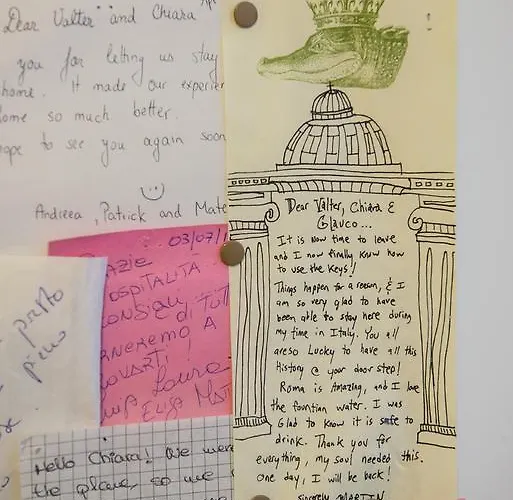 Dear Valter and Chiara
you for letting us stay
home. It made our experien
ome so much better.
ope to see you again soon
Andreea, Patrick and Mate
03/07/1
azie
OSPITALITÀ
CONSIGLI di TUTT
RNEREMO A
OVARTI!
Laura
ELISA MAT
presto
Hello Chiara! We were
the place, so we
Dear Valter, Chiara &
Glauco...
It is now time to leave
and I now finally know how
to use the keys!
Things happen for a reason, & I
am so very glad to have
been able to stay here during
my time in Italy. You all
areso Lucky to have all this
History @ your door step!
Roma is Amazing, and I love
the fountian water. I was
Glad to know it is safe to
drink. Thank you for
everything, my soul needed this.
One day, I will be back!
sincerely MARTIN